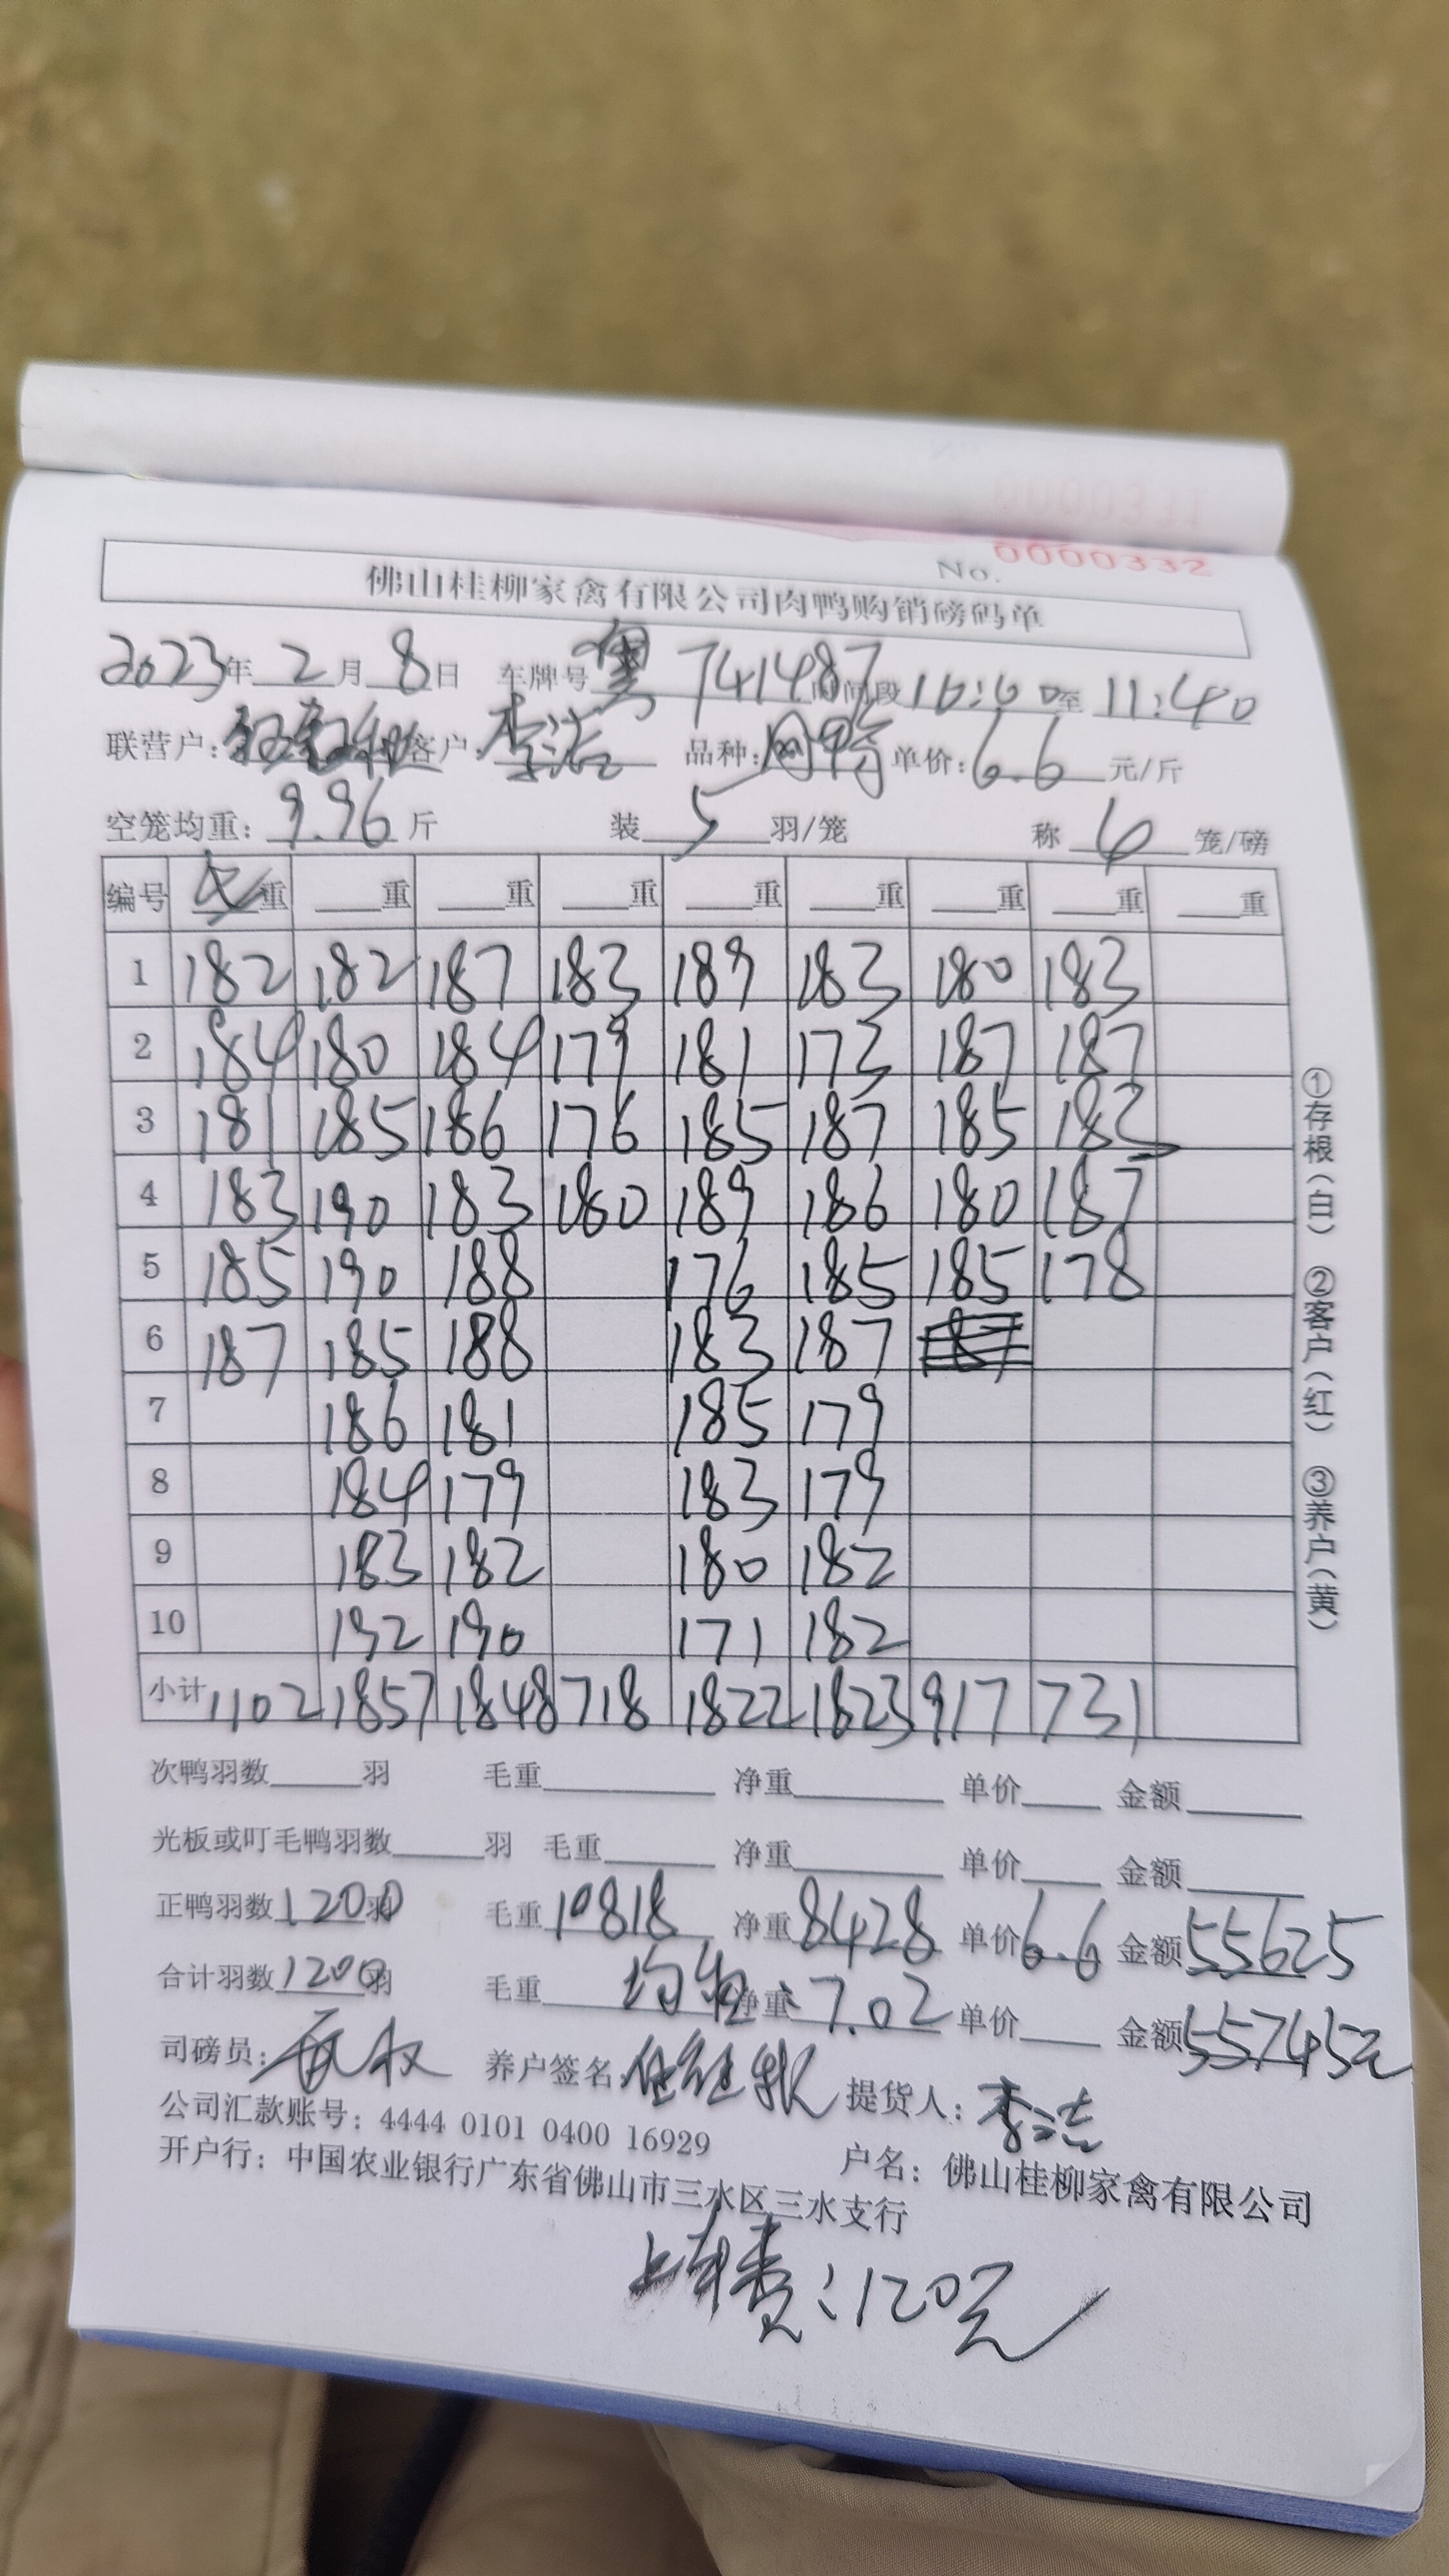 No. 0000332
佛山桂柳家禽有限公司肉鸭购销磅码单
2023年 2 月 8 日 车牌号 粤 741487 时间段 10:00 至 11:40
联营户: 客户: 李洁 品种: 单价: 6.6 元/斤
空笼均重: 9.96 斤 装 5 羽/笼 称 6 笼/磅
编号 重 重 重 重 重 重 重 重 重
1 182 182 187 183 189 183 180 183
2 184 180 184 179 181 173 187 187
3 181 185 186 176 185 187 185 182
4 183 190 183 180 189 186 180 187
5 185 190 188 176 185 185 178
6 187 185 188 183 187
7 186 181 185 179
8 184 179 183 179
9 183 182 180 182
10 192 190 171 182
小计 1102 1857 1848 718 1822 1823 917 731
次鸭羽数 羽 毛重 净重 单价 金额
光板或叮毛鸭羽数 羽 毛重 净重 单价 金额
正鸭羽数 1200 羽 毛重 10818 净重 8428 单价 6.6 金额 55625
合计羽数 1200 羽 毛重 均重 净重: 7.02 单价 金额 55745元
司磅员: 养户签名: 提货人: 李洁
公司汇款账号: 4444 0101 0400 16929
户名: 佛山桂柳家禽有限公司
开户行: 中国农业银行广东省佛山市三水区三水支行
上车费: 120元
①存根(白) ②客户(红) ③养户(黄)